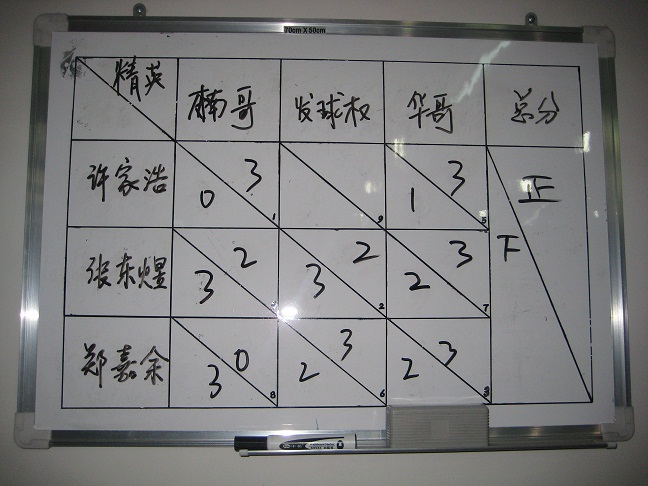 70cm X 50cm
精英 楠哥 发球权 华哥 总分
许家浩 0 3 1 9 1 3 5 正
下
张东煜 3 2 3 2 2 2 3 7
郑嘉余 3 0 8 2 3 6 2 3